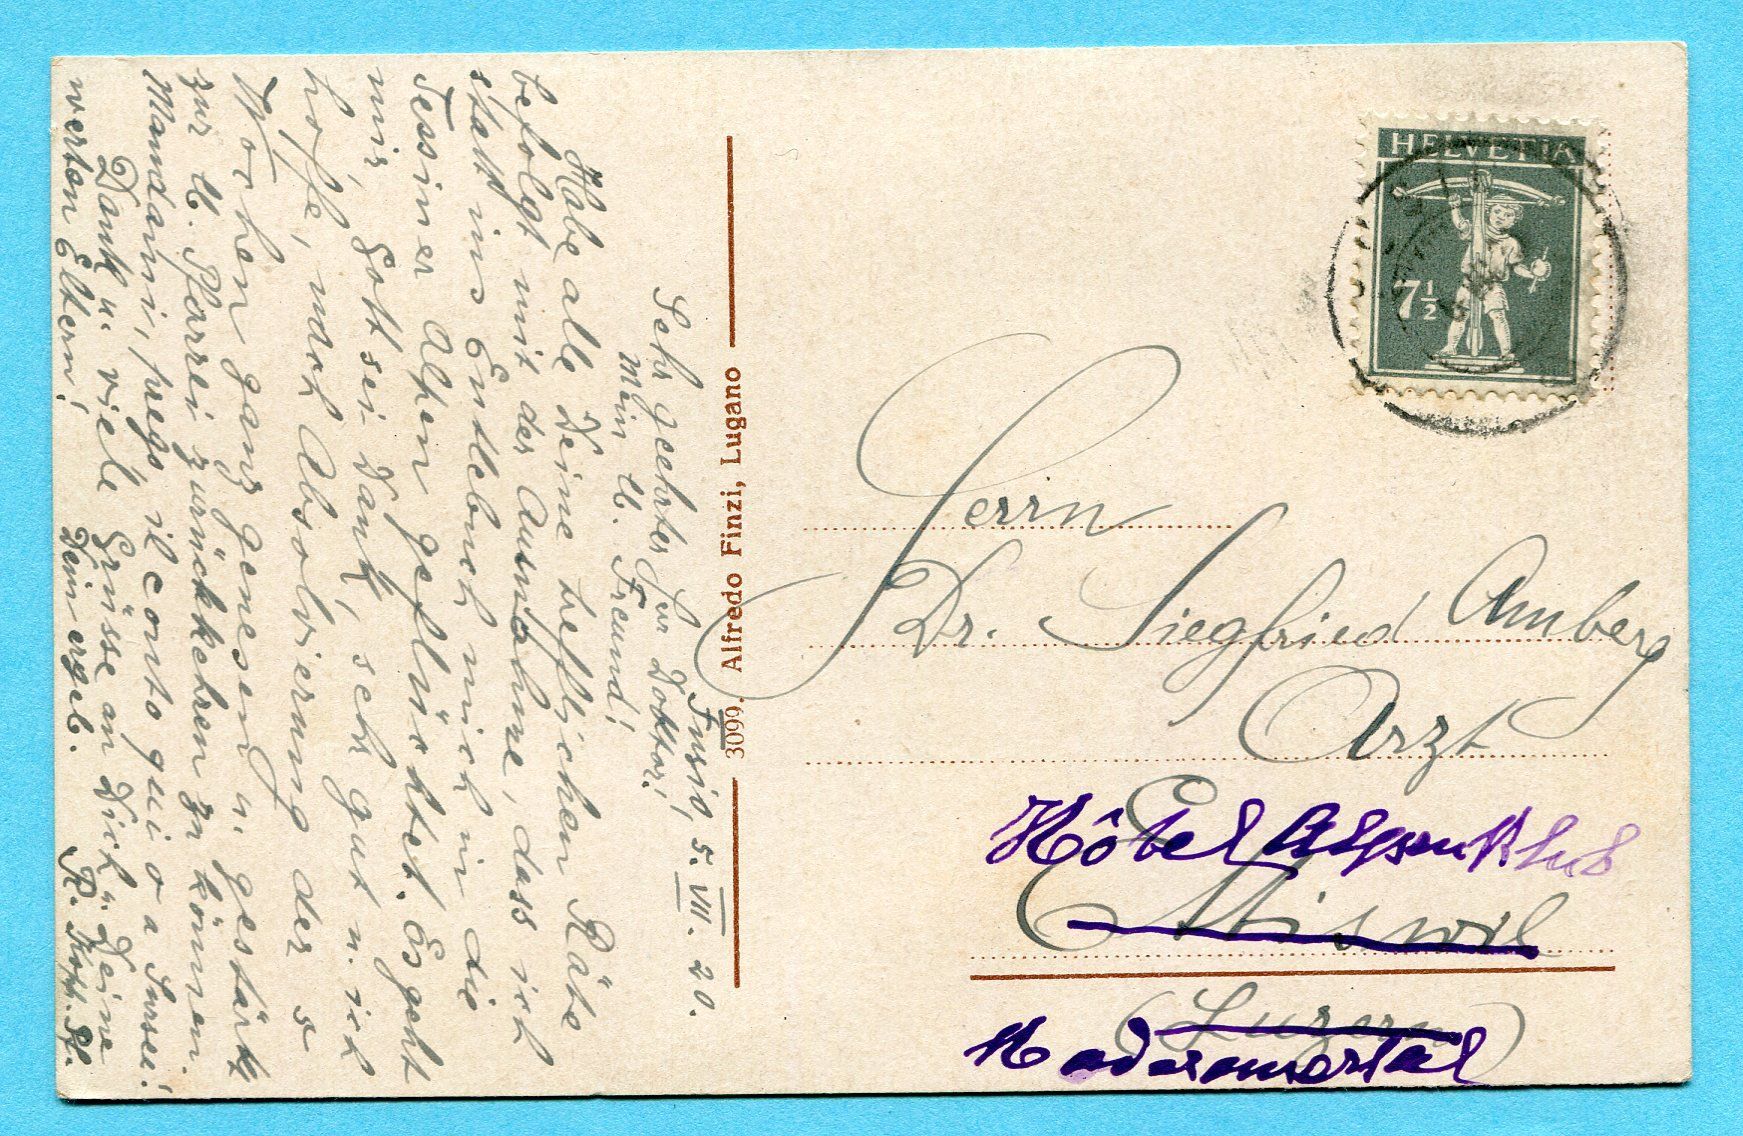 Fusio, 5. VIII. 20.
Sehr geehrter Herr Doktor!
Mein lb. Freund!
Habe all Deine trefflichen Räte
befolgt mit der Ausnahme, dass ich
statt ins Entlebuch mich in die
Tessiner Alpen geflüchtet. Es geht
mir, Gott sei Dank, sehr gut u. ich
hoffe, nach Absolvierung der 5
Wochen ganz genesen u. gestärkt
zur lb. Pfarrei zurückkehren zu können.
Mandami, prego il conto qui o a Sursee!
Dank u. viele Grüsse an Dich & Deine
werten Eltern!
Dein ergeb.
R. Kopp. Pf.
3099. Alfredo Finzi, Lugano
HELVETIA
7 1/2
Herrn
Dr. Siegfried Amberg
Arzt
Hôtel Alpenklub
Ettiswil
(Luzern)
Maderanertal